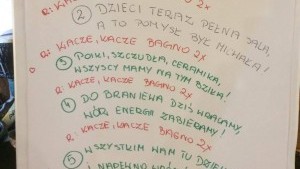 R: KACZE, KACZE BAGNO 2x
② DZIECI TERAZ PEŁNA SALA,
A TO POMYSŁ BYŁ MICHAŁA!
R: KACZE, KACZE BAGNO 2x
③ POIKI, SZCZUDŁA, CERAMIKA,
WSZYSCY MAMY NA TYM BZIKA!
R: KACZE, KACZE BAGNO 2x
④ DO BRANIEWA DZIŚ WRACAMY,
WÓR ENERGII ZABIERAMY!
R: KACZE, KACZE BAGNO 2x
⑤ WSZYSTKIM WAM TU
I NAPEWNO